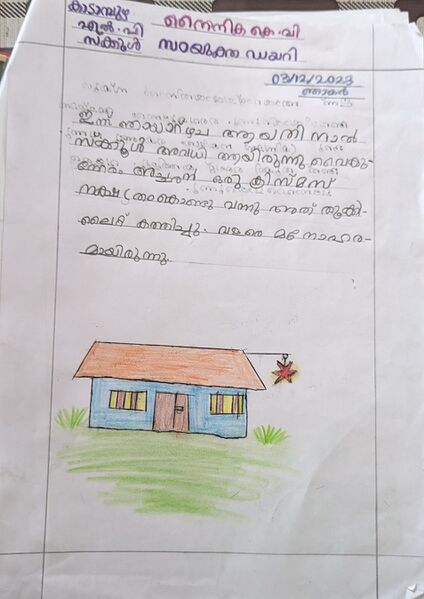 കാടാമ്പുഴ
എൽ.പി
സ്ക്കൂൾ
നൈനിക കെ.വി
സംയുക്ത ഡയറി
03/12/2023
ഞായർ
ഇന്ന് ഞായാറഴ്ച ആയതിനാൽ
സ്ക്കൂൾ അവധി ആയിരുന്നു വൈകു-
ന്നേരം അച്ഛൻ ഒരു ക്രിസ്മസ്
നക്ഷത്രം കൊണ്ടു വന്നു അത് തൂക്കി-
ലൈറ്റ് കത്തിച്ചു. വളരെ മനോഹര-
മായിരുന്നു.